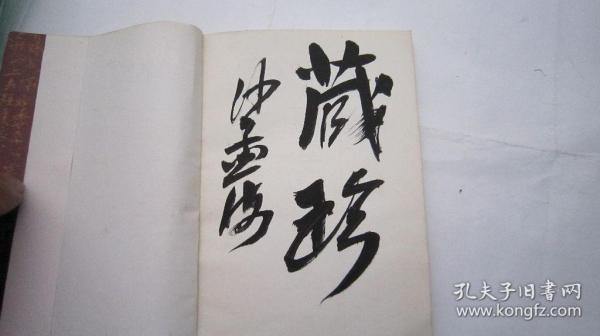 藏珍
沙孟海
孔夫子旧书网
www.kongfz.com